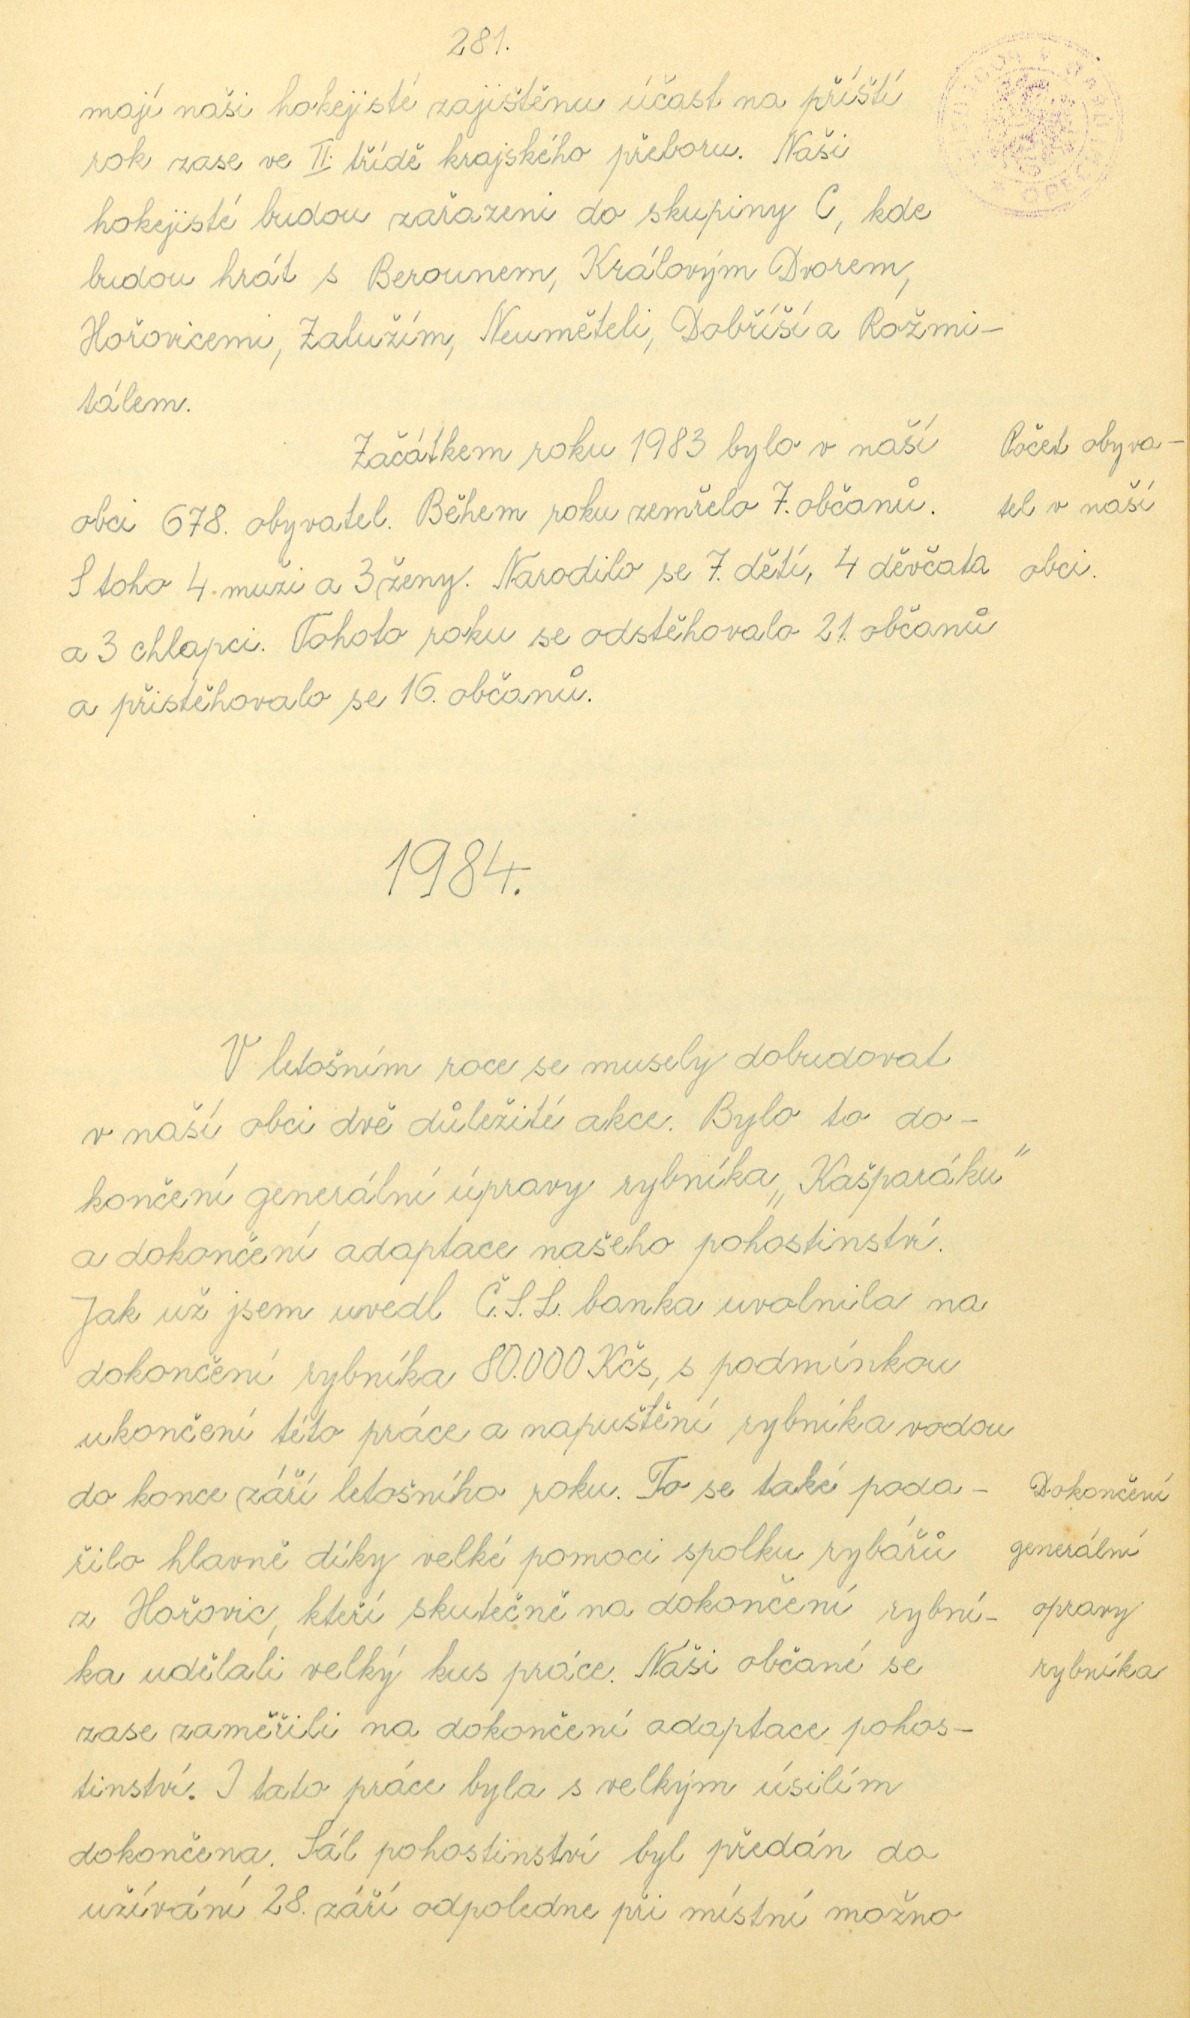 281.
mají naši hokejisté zajištěnu účast na příští
rok zase ve II. třídě krajského přeboru. Naši
hokejisté budou zařazeni do skupiny C, kde
budou hrát s Berounem, Královým Dvorem,
Hořovicemi, Zalužím, Neuměteli, Dobříší a Rožmi-
tálem.
Začátkem roku 1983 bylo v naší
Počet obyva-
obci 678. obyvatel. Během roku zemřelo 7. občanů.
tel v naší
S toho 4. muži a 3 ženy. Narodilo se 7. dětí, 4 děvčata
obci.
a 3 chlapci. Tohoto roku se odstěhovalo 21. občanů
a přistěhovalo se 16. občanů.
1984.
V letošním roce se musely dobudovat
v naší obci dvě důležité akce. Bylo to do-
končení generální úpravy rybníka „Kašparáku"
a dokončení adaptace našeho pohostinství.
Jak už jsem uvedl Č.S.S. banka uvolnila na
dokončení rybníka 80.000 Kčs, s podmínkou
ukončení této práce a napuštění rybníka vodou
do konce září letošního roku. To se také poda-
Dokončení
řilo hlavně díky velké pomoci spolku rybářů
generální
z Hořovic, kteří skutečně na dokončení rybní-
opravy
ka udělali velký kus práce. Naši občané se
rybníka
zase zaměřili na dokončení adaptace pohos-
tinství. I tato práce byla s velkým úsilím
dokončena. Sál pohostinství byl předán do
užívání 28. září odpoledne při místní možno